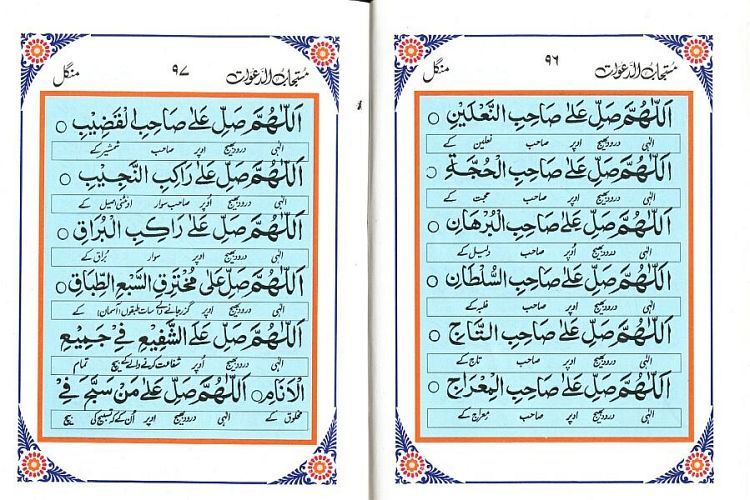 مستجاب الدعوات ۹۶ منگل
اَللّٰهُمَّ صَلِّ عَلٰى صَاحِبِ النَّعْلَيْنِ ○
الٰہی درود بھیج اوپر صاحب نعلین کے
اَللّٰهُمَّ صَلِّ عَلٰى صَاحِبِ الْحُجَّةِ ○
الٰہی درود بھیج اوپر صاحب حجت کے
اَللّٰهُمَّ صَلِّ عَلٰى صَاحِبِ الْبُرْهَانِ ○
الٰہی درود بھیج اُوپر صاحب دلیل کے
اَللّٰهُمَّ صَلِّ عَلٰى صَاحِبِ السُّلْطَانِ ○
الٰہی درود بھیج اوپر صاحب غلبہ کے
اَللّٰهُمَّ صَلِّ عَلٰى صَاحِبِ التَّاجِ ○
الٰہی درود بھیج اوپر صاحب تاج کے
اَللّٰهُمَّ صَلِّ عَلٰى صَاحِبِ الْمِعْرَاجِ ○
الٰہی درود بھیج اوپر صاحب معراج کے
مستجاب الدعوات ۹۷ منگل
اَللّٰهُمَّ صَلِّ عَلٰى صَاحِبِ الْقَضِيْبِ ○
الٰہی درود بھیج اوپر صاحب شمشیر کے
اَللّٰهُمَّ صَلِّ عَلٰى رَاكِبِ النَّجِيْبِ ○
الٰہی درود بھیج اُوپر صاحب سوار اونٹنی اصیل کے
اَللّٰهُمَّ صَلِّ عَلٰى رَاكِبِ الْبُرَاقِ ○
الٰہی درود بھیج اوپر سوار بُراق کے
اَللّٰهُمَّ صَلِّ عَلٰى مُخْتَرِقِ السَّبْعِ الطِّبَاقِ ○
الٰہی درود بھیج اوپر گزر جانے والے سات طبقوں (آسمان) کے
اَللّٰهُمَّ صَلِّ عَلَى الشَّفِيْعِ فِيْ جَمِيْعِ
الٰہی درود بھیج اُوپر شفاعت کرنے والے کے بیچ تمام
الْاَنَامِ ○ اَللّٰهُمَّ صَلِّ عَلٰى مَنْ سَبَّحَ فِيْ
مخلوق کے الٰہی درود بھیج اوپر اُن کے کہ تسبیح کی بیچ